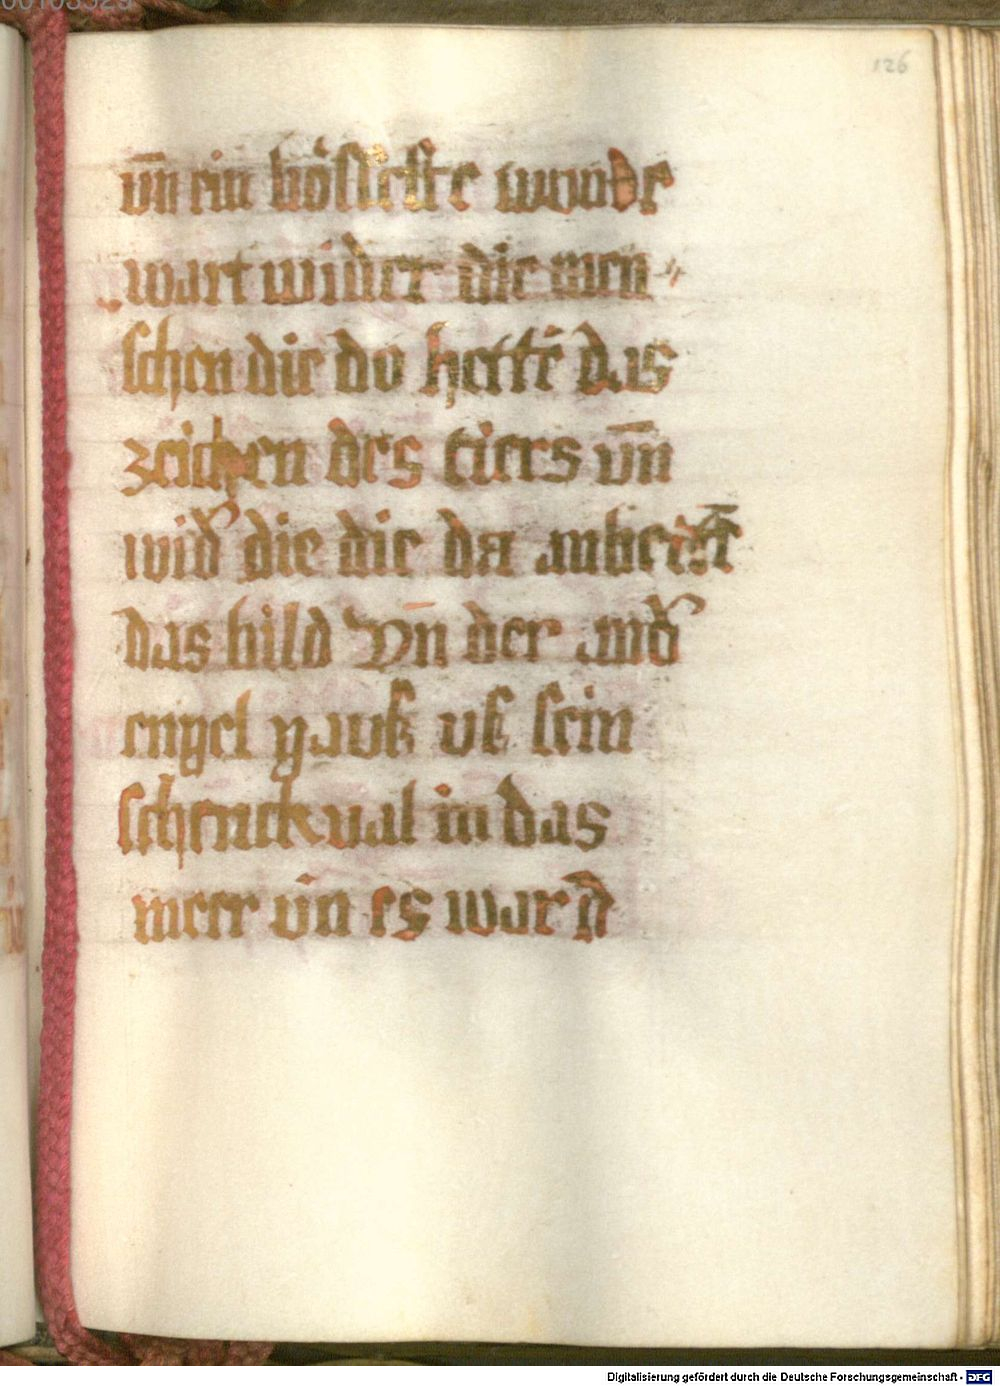 00103329
126
vn̄ ein bösseste wunde
wart wider die men
schen die do hettē das
zeichen des tiers vn̄
wid' die die da anbedtē
das bild Vn̄ der and'
engel gauß uß sein
schenckval in das
meer vn̄ es ward
Digitalisierung gefördert durch die Deutsche Forschungsgemeinschaft - DFG